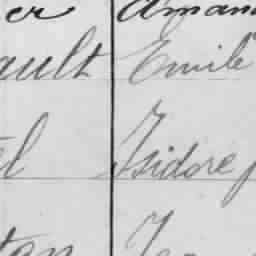 er Aman
ault Emile
el Isidore
ton